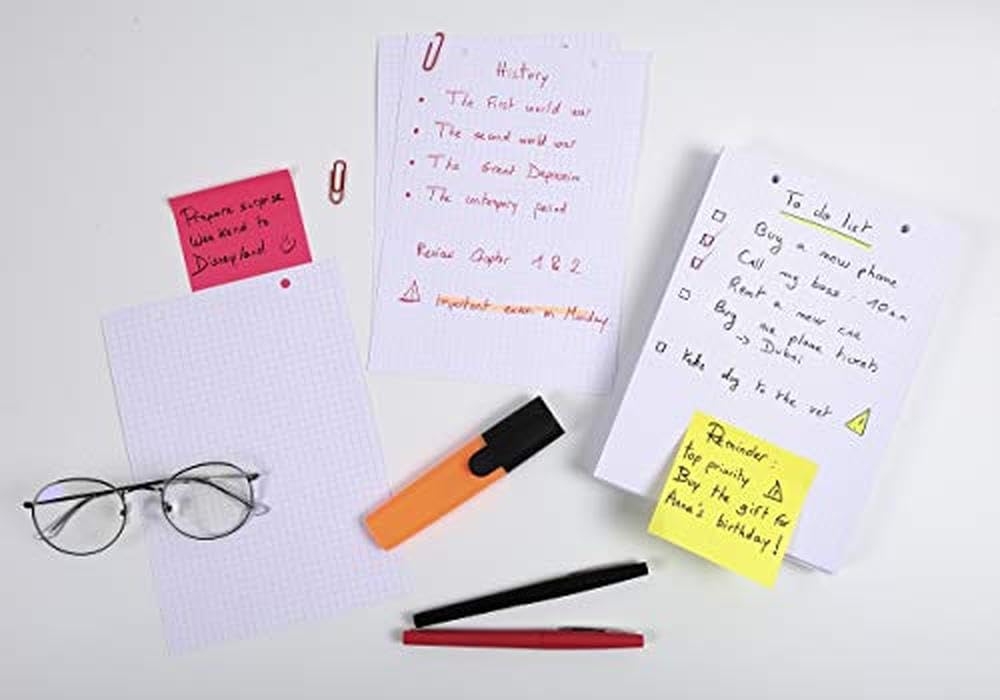 Prepare surprise
Weekend to
Disneyland
History
The First world war
The second world war
The Great Depression
The contempary period
Review Chapter 1 & 2
important exam on Monday
To do list
Buy a new phone
Call my boss : 10 am
Rent a new car
Buy the plane tickets
→ Dubai
take dog to the vet
Reminder :
top priority
Buy the gift for
Anna's birthday !